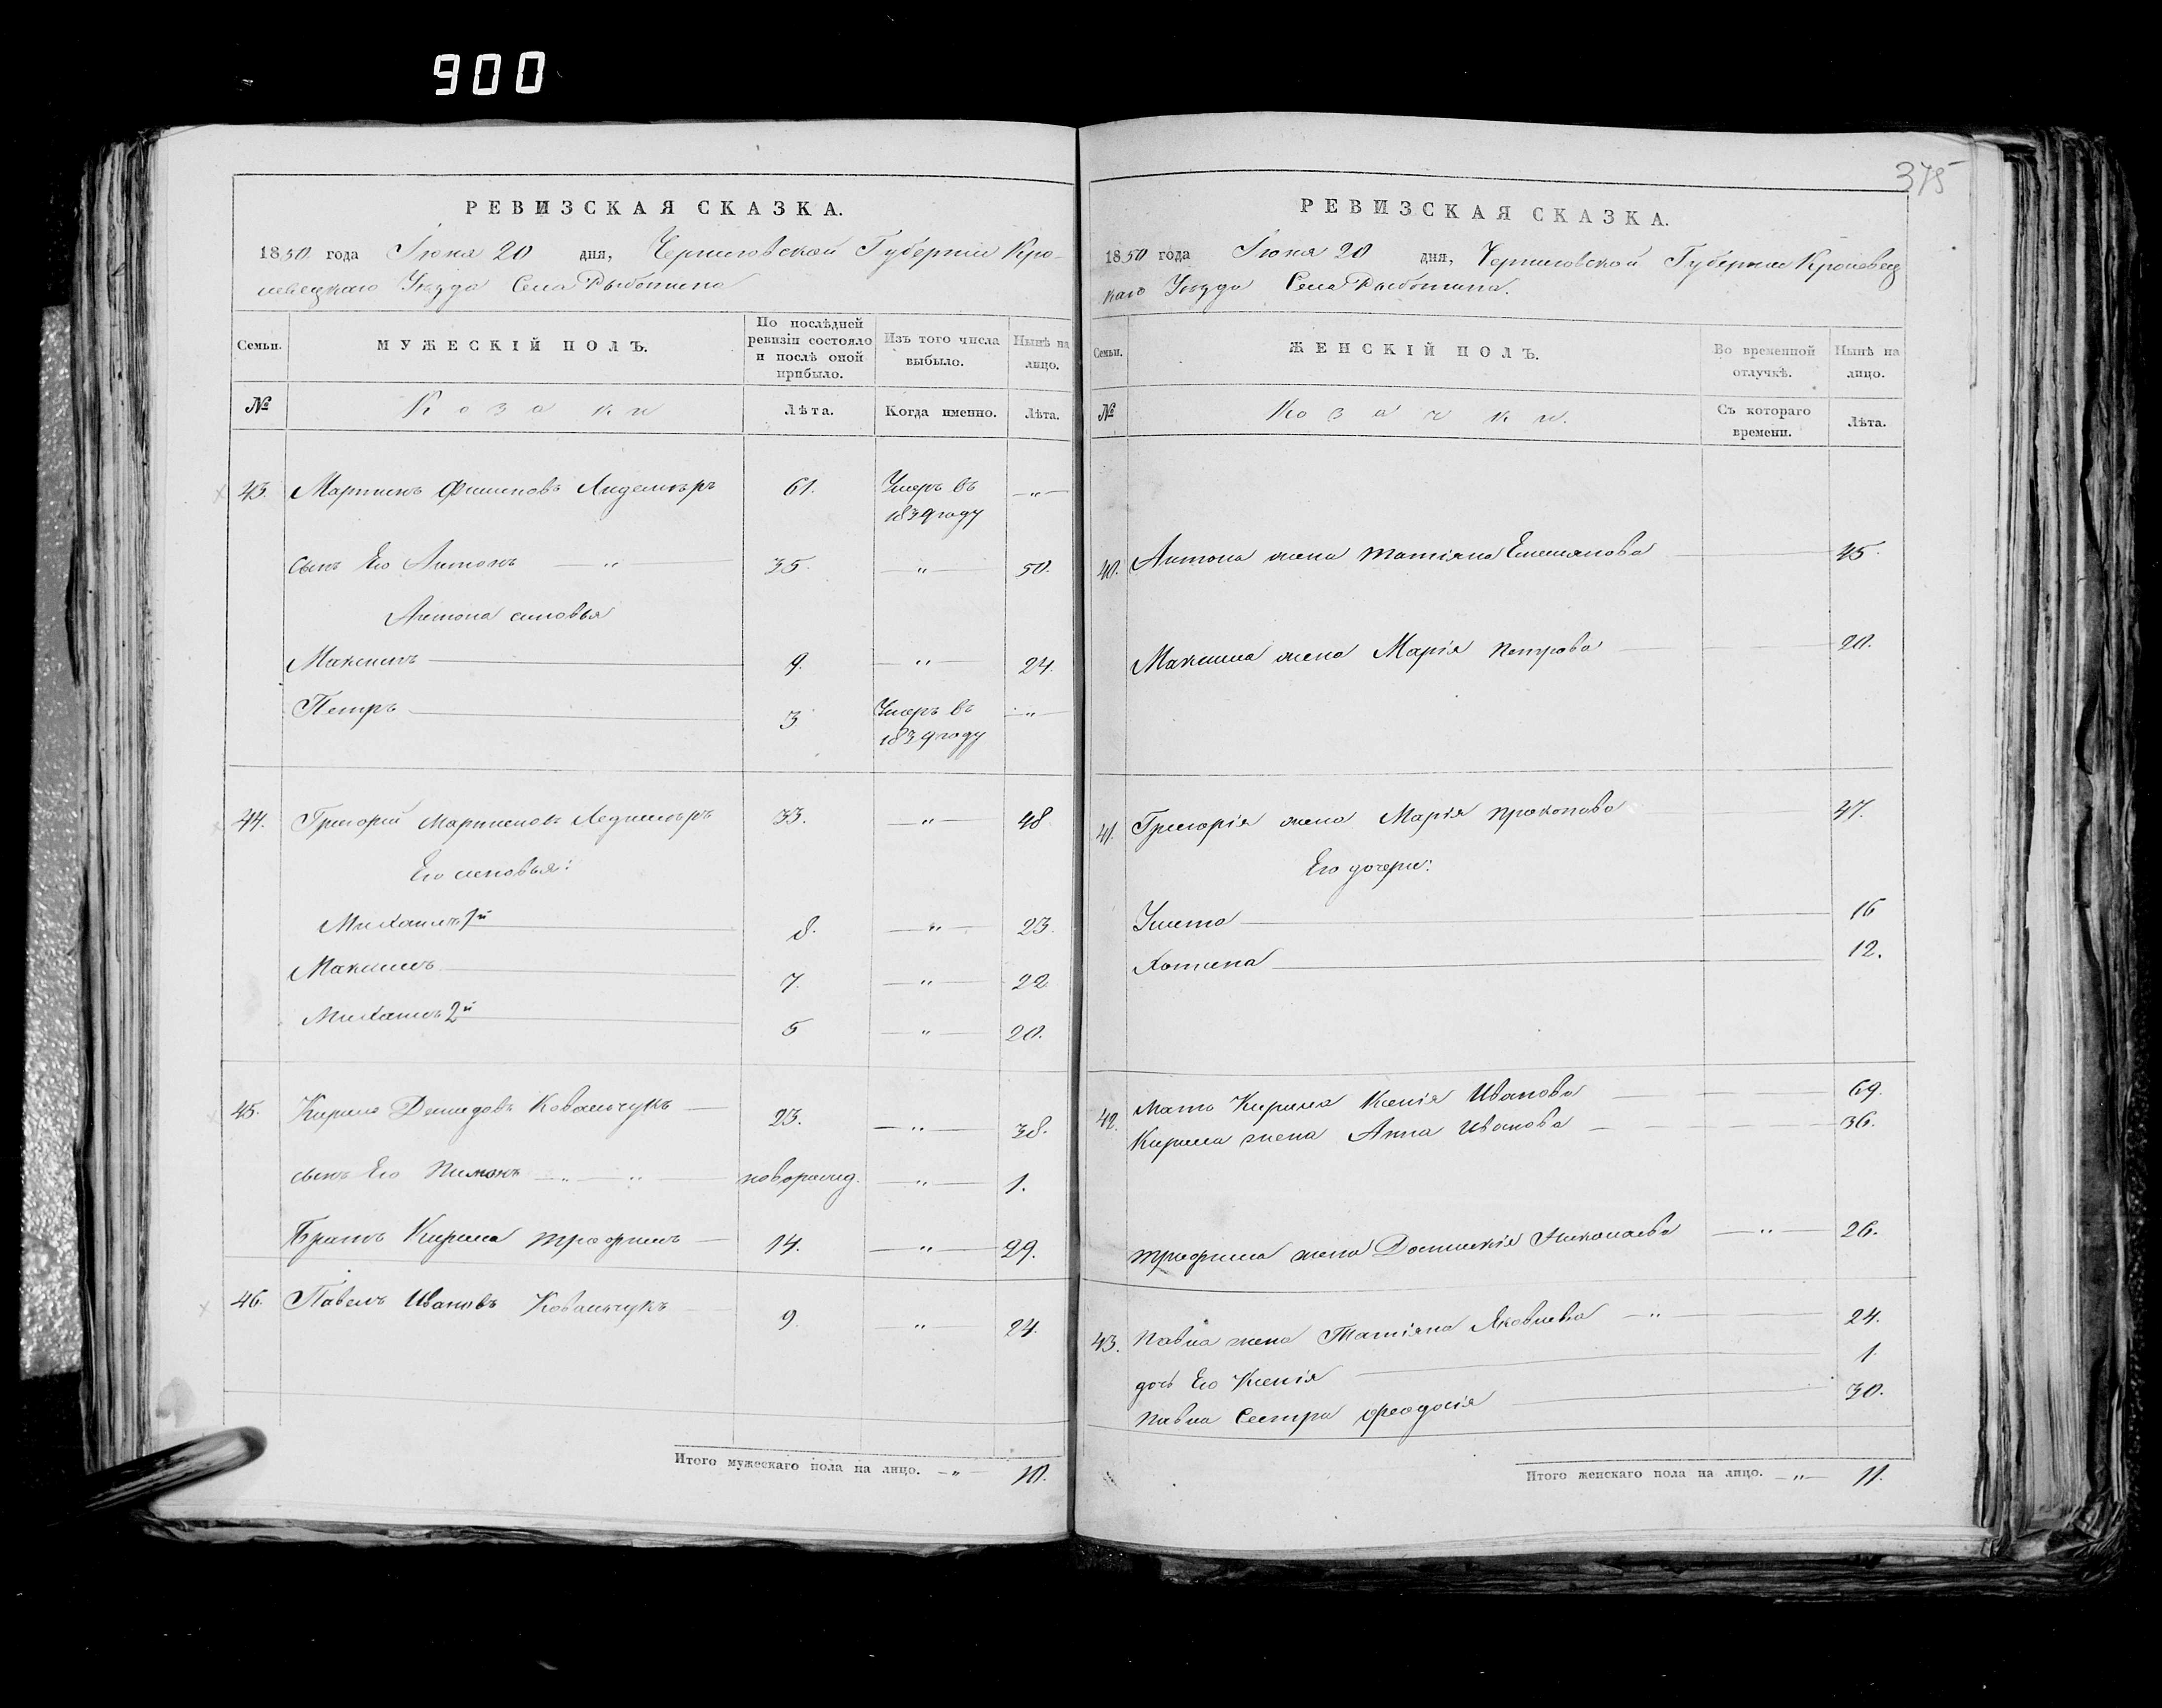 900
375
РЕВИЗСКАЯ СКАЗКА.
1850 года Іюня 20 дня, Черниговской Губерніи Кро-
левецкаго Уѣзда Села Рыботина
Семьи.
МУЖЕСКІЙ ПОЛЪ.
По послѣдней ревизіи состояло и послѣ оной прибыло.
Изъ того числа выбыло.
Нынѣ на лицо.
№ Козаки Лѣта. Когда именно. Лѣта.
43. Мартинъ 61. Умеръ въ 1839 году —"—
сынъ Его Антонъ —"— 35. —"— 50.
Антона синовья
Максимъ 9. —"— 24.
Петръ 3 Умеръ въ 1839 году —"—
44. Григорій Мартиновъ 33. —"— 48
Его синовья:
Михаилъ 1й 8. —"— 23.
Максимъ 7. —"— 22
Михаилъ 2й 5 —"— 20.
45. Кирило Демидовъ Ковальчукъ 23. —"— 38.
сынъ Его Пименъ —"— —"— новорожд. —"— 1.
Братъ Кирила Трофимъ 14. —"— 29.
46. Павелъ Ивановъ Ковальчукъ 9. —"— 24.
Итого мужескаго пола на лицо. —"— 10.
РЕВИЗСКАЯ СКАЗКА.
1850 года Іюня 20 дня, Черниговской Губерніи Кролевец
каго Уѣзда Села Рыботина.
Семьи.
ЖЕНСКІЙ ПОЛЪ.
Во временной отлучкѣ.
Нынѣ на лицо.
№ Козачки. Съ котораго времени. Лѣта.
40. Антона жена Татіяна Емельянова 45.
Максима жена Марія Петрова 20.
41. Григорія жена Марія Прокопова 47.
Его дочери:
Улита 16
Хотина 12.
42. Мать Кирила Ксенія Иванова 69.
Кирила жена Анна Иванова 36.
Трофима жена Домникія Николаева —"— 26.
43. Павла жена Татіяна Яковлева —"— 24.
дочь Его Ксенія 1
Павла Сестра Феодосія 30.
Итого женскаго пола на лицо. —"— 11.